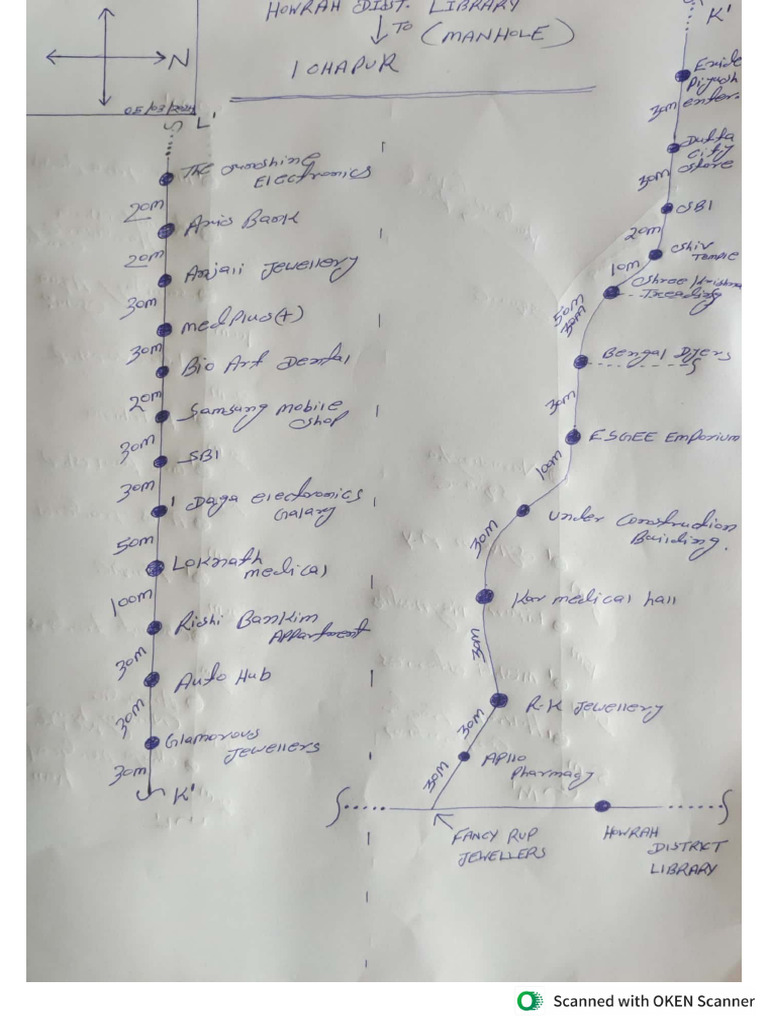 HOWRAH DIST. LIBRARY
TO (MANHOLE)
ICHAPUR
N
05/03/2024
L'
The Sunoshine
Electronics
20m
Axis Bank
20m
Anjali Jewellery
30m
medplus(+)
30m
Bio Art Dental
20m
Samsang mobile
shop
30m
SBI
30m
Daga electoronics
Galary
50m
Loknath
medical
100m
Rishi Bankim
Appartment
30m
Auto Hub
30m
Glamorous
Jewellers
30m
K'
K'
Exide
Piyush
enter.
30m
Dutta
City
store
30m
SBI
20m
Shiv
Temple
10m
Shree Krishna
Treading
50m
30m
Bengal Dyers
30m
ESGEE Emporium
100m
under Construction
Building.
30m
Kar medical hall
30m
R.K Jewellery
30m
Apllo
Pharmacy
30m
FANCY RUP
JEWELLERS
HOWRAH
DISTRICT
LIBRARY
Scanned with OKEN Scanner